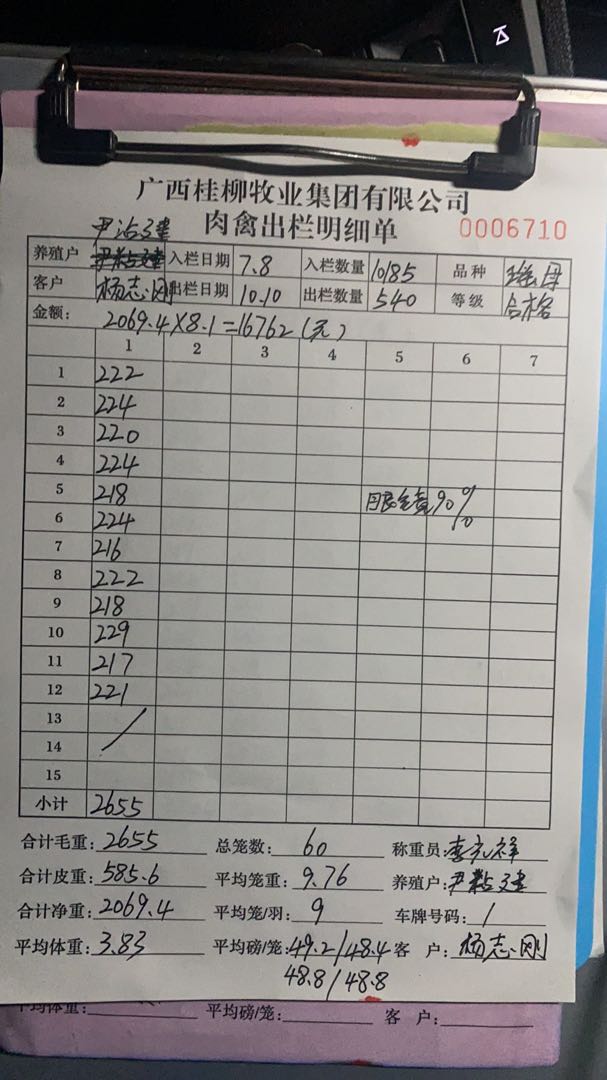 广西桂柳牧业集团有限公司
肉禽出栏明细单 0006710
养殖户 入栏日期 7.8 入栏数量 10185 品种
客户 杨志刚 出栏日期 10.10 出栏数量 540 等级 合格
金额: 2069.4×8.1=16762(元)
1 2 3 4 5 6 7
1 222
2 224
3 220
4 224
5 218 90%
6 224
7 216
8 222
9 218
10 229
11 217
12 221
13
14
15
小计 2655
合计毛重: 2655 总笼数: 60 称重员: 李礼祥
合计皮重: 585.6 平均笼重: 9.76 养殖户:
合计净重: 2069.4 平均笼/羽: 9 车牌号码: /
平均体重: 3.83 平均磅/笼: 49.2/48.4 客 户: 杨志刚
48.8/48.8
平均体重: 平均磅/笼: 客 户: